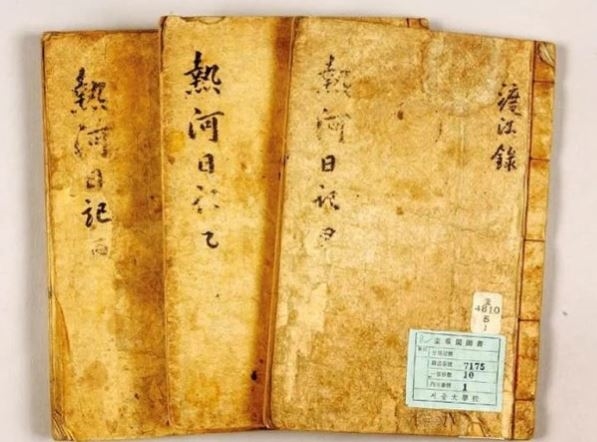 熱河日記 丙
熱河日記 乙
熱河日記 甲
渡江錄
4810
5
1
奎章閣圖書
7175
10
1
서울大學校